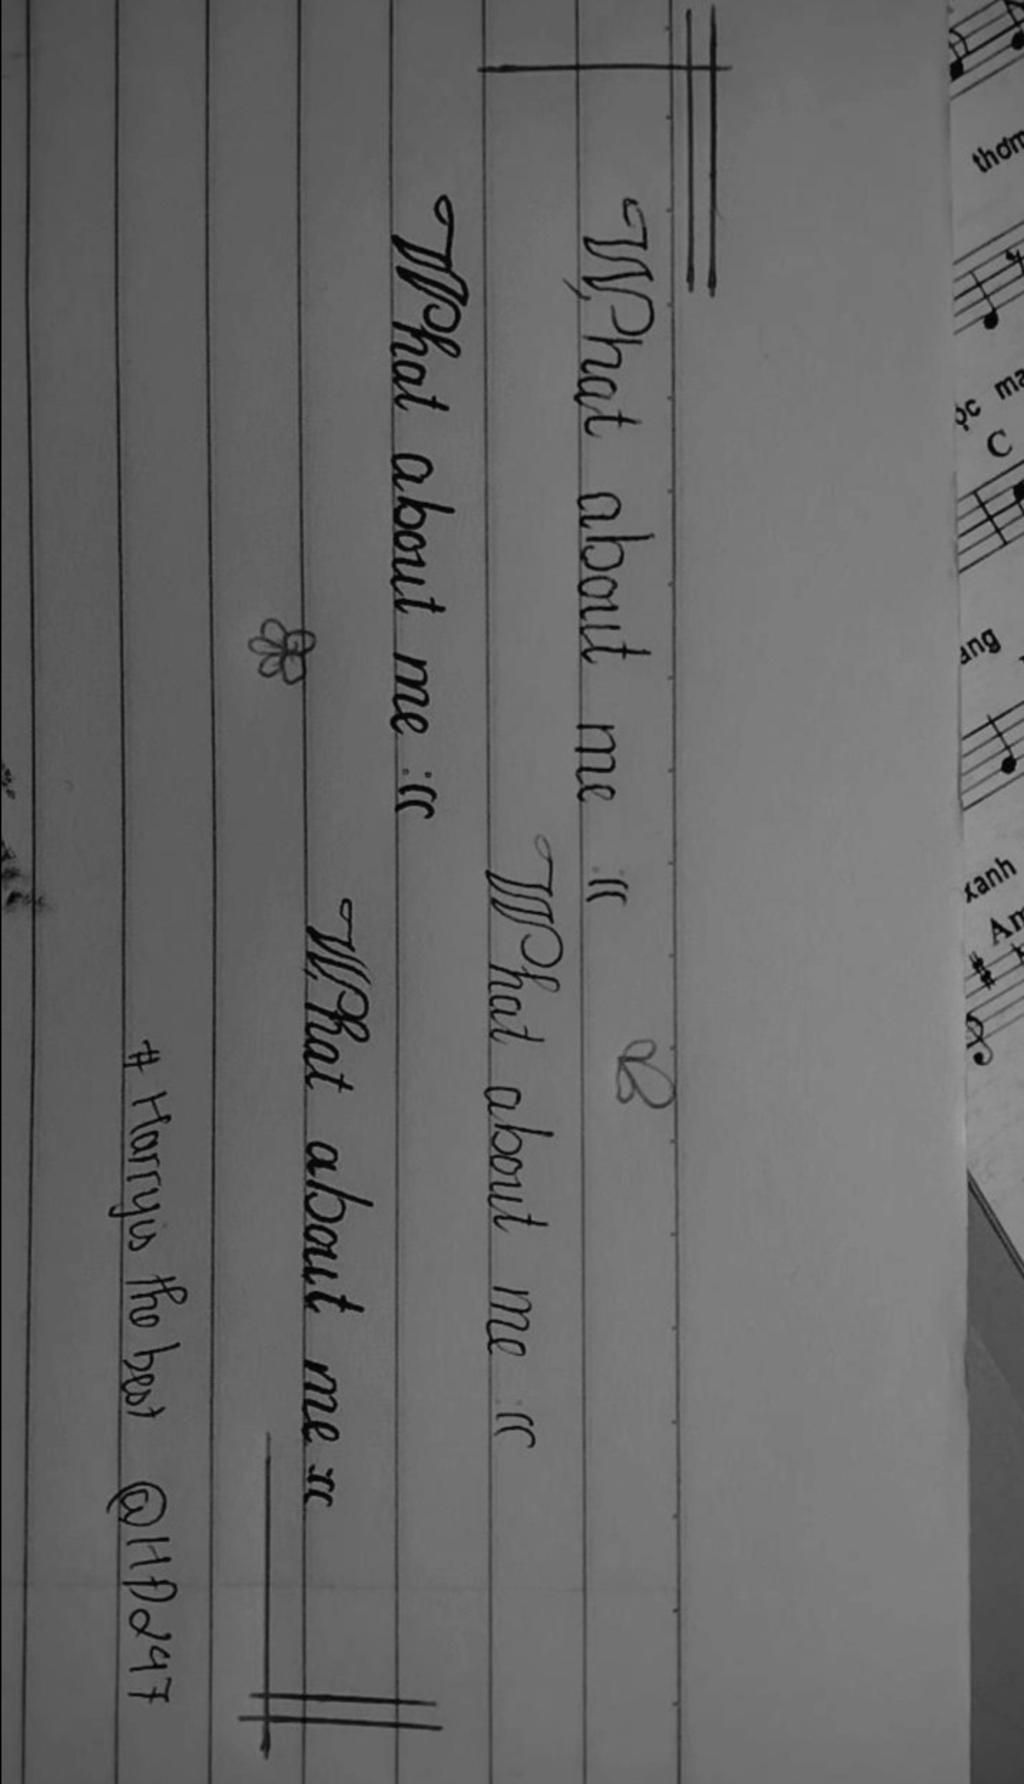 What about me :((
What about me :((
What about me :((
What about me :((
# Harry is the best @HD247
thơm
ma
C
ang
xanh
Am